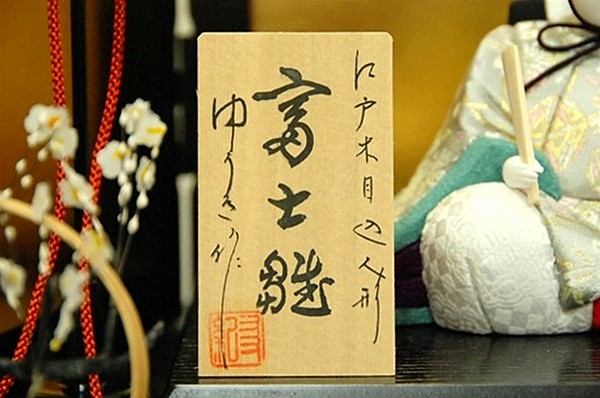 江戸木目込人形
富士雛
ゆうき作